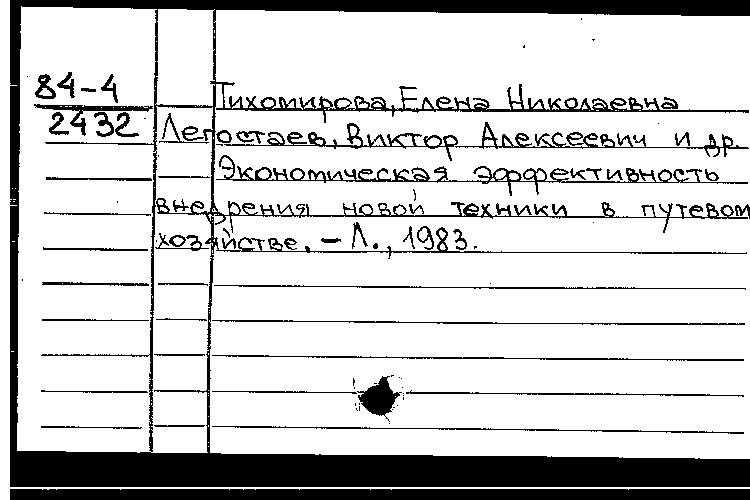 84-4
2432
Тихомирова, Елена Николаевна
Легостаев, Виктор Алексеевич и др.
Экономическая эффективность
внедрения новой техники в путевом
хозяйстве. – Л., 1983.